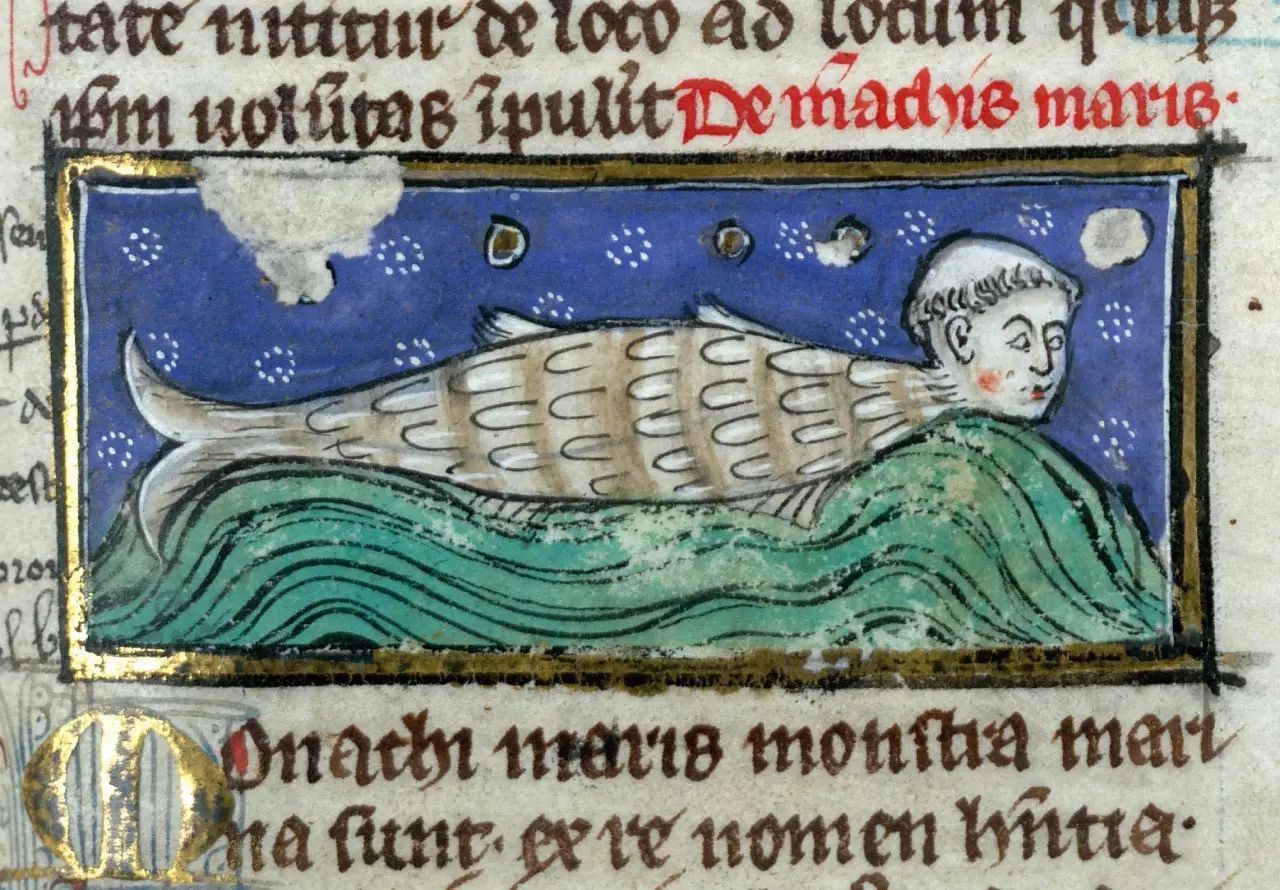 tate nititur de loco ad locum
ip̃m uolũtas ĩpulĩt De mͦachis maris.
Monachi maris monstra mari
na sunt. ex re nomen hñtia.